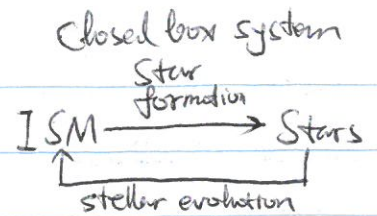 Closed box system
Star
formation
ISM Stars
stellar evolution